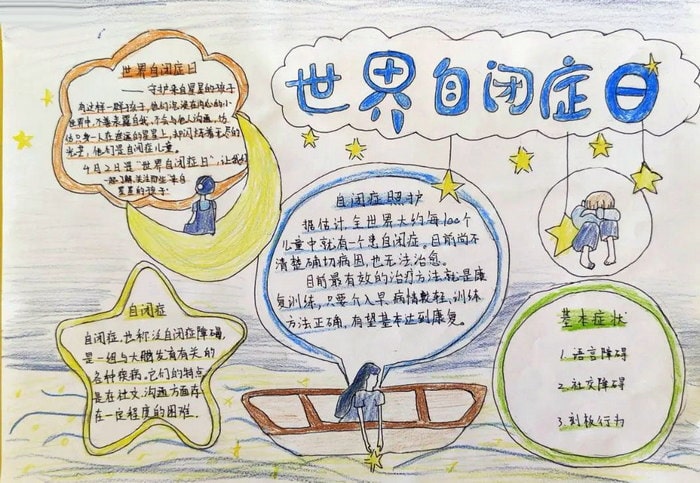 世界自闭症日
世界自闭症日
——守护来自星星的孩子
有这样一群孩子,他们沉浸在内心的小
世界中,不善表露自我,不会与他人沟通,仿
佛只身一人在遥远的星星上,却闪烁着无尽的
光芒,他们是自闭症儿童。
4月2日是“世界自闭症日”,让我们
一起了解,关注那些来自
星星的孩子
自闭症照护
据估计,全世界大约每100个
儿童中就有一个患自闭症。目前尚不
清楚确切病因,也无法治愈。
目前最有效的治疗方法就是康
复训练,只要介入早、病情较轻、训练
方法正确,有望基本达到康复。
自闭症
自闭症,也称泛自闭症障碍,
是一组与大脑发育有关的
各种疾病,它们的特点
是在社交、沟通方面存
在一定程度的困难。
基本症状
1.语言障碍
2.社交障碍
3.刻板行为